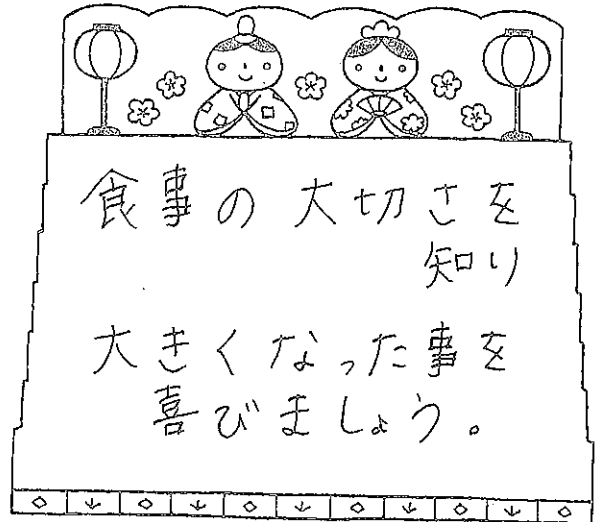 食事の大切さを
知り
大きくなった事を
喜びましょう。